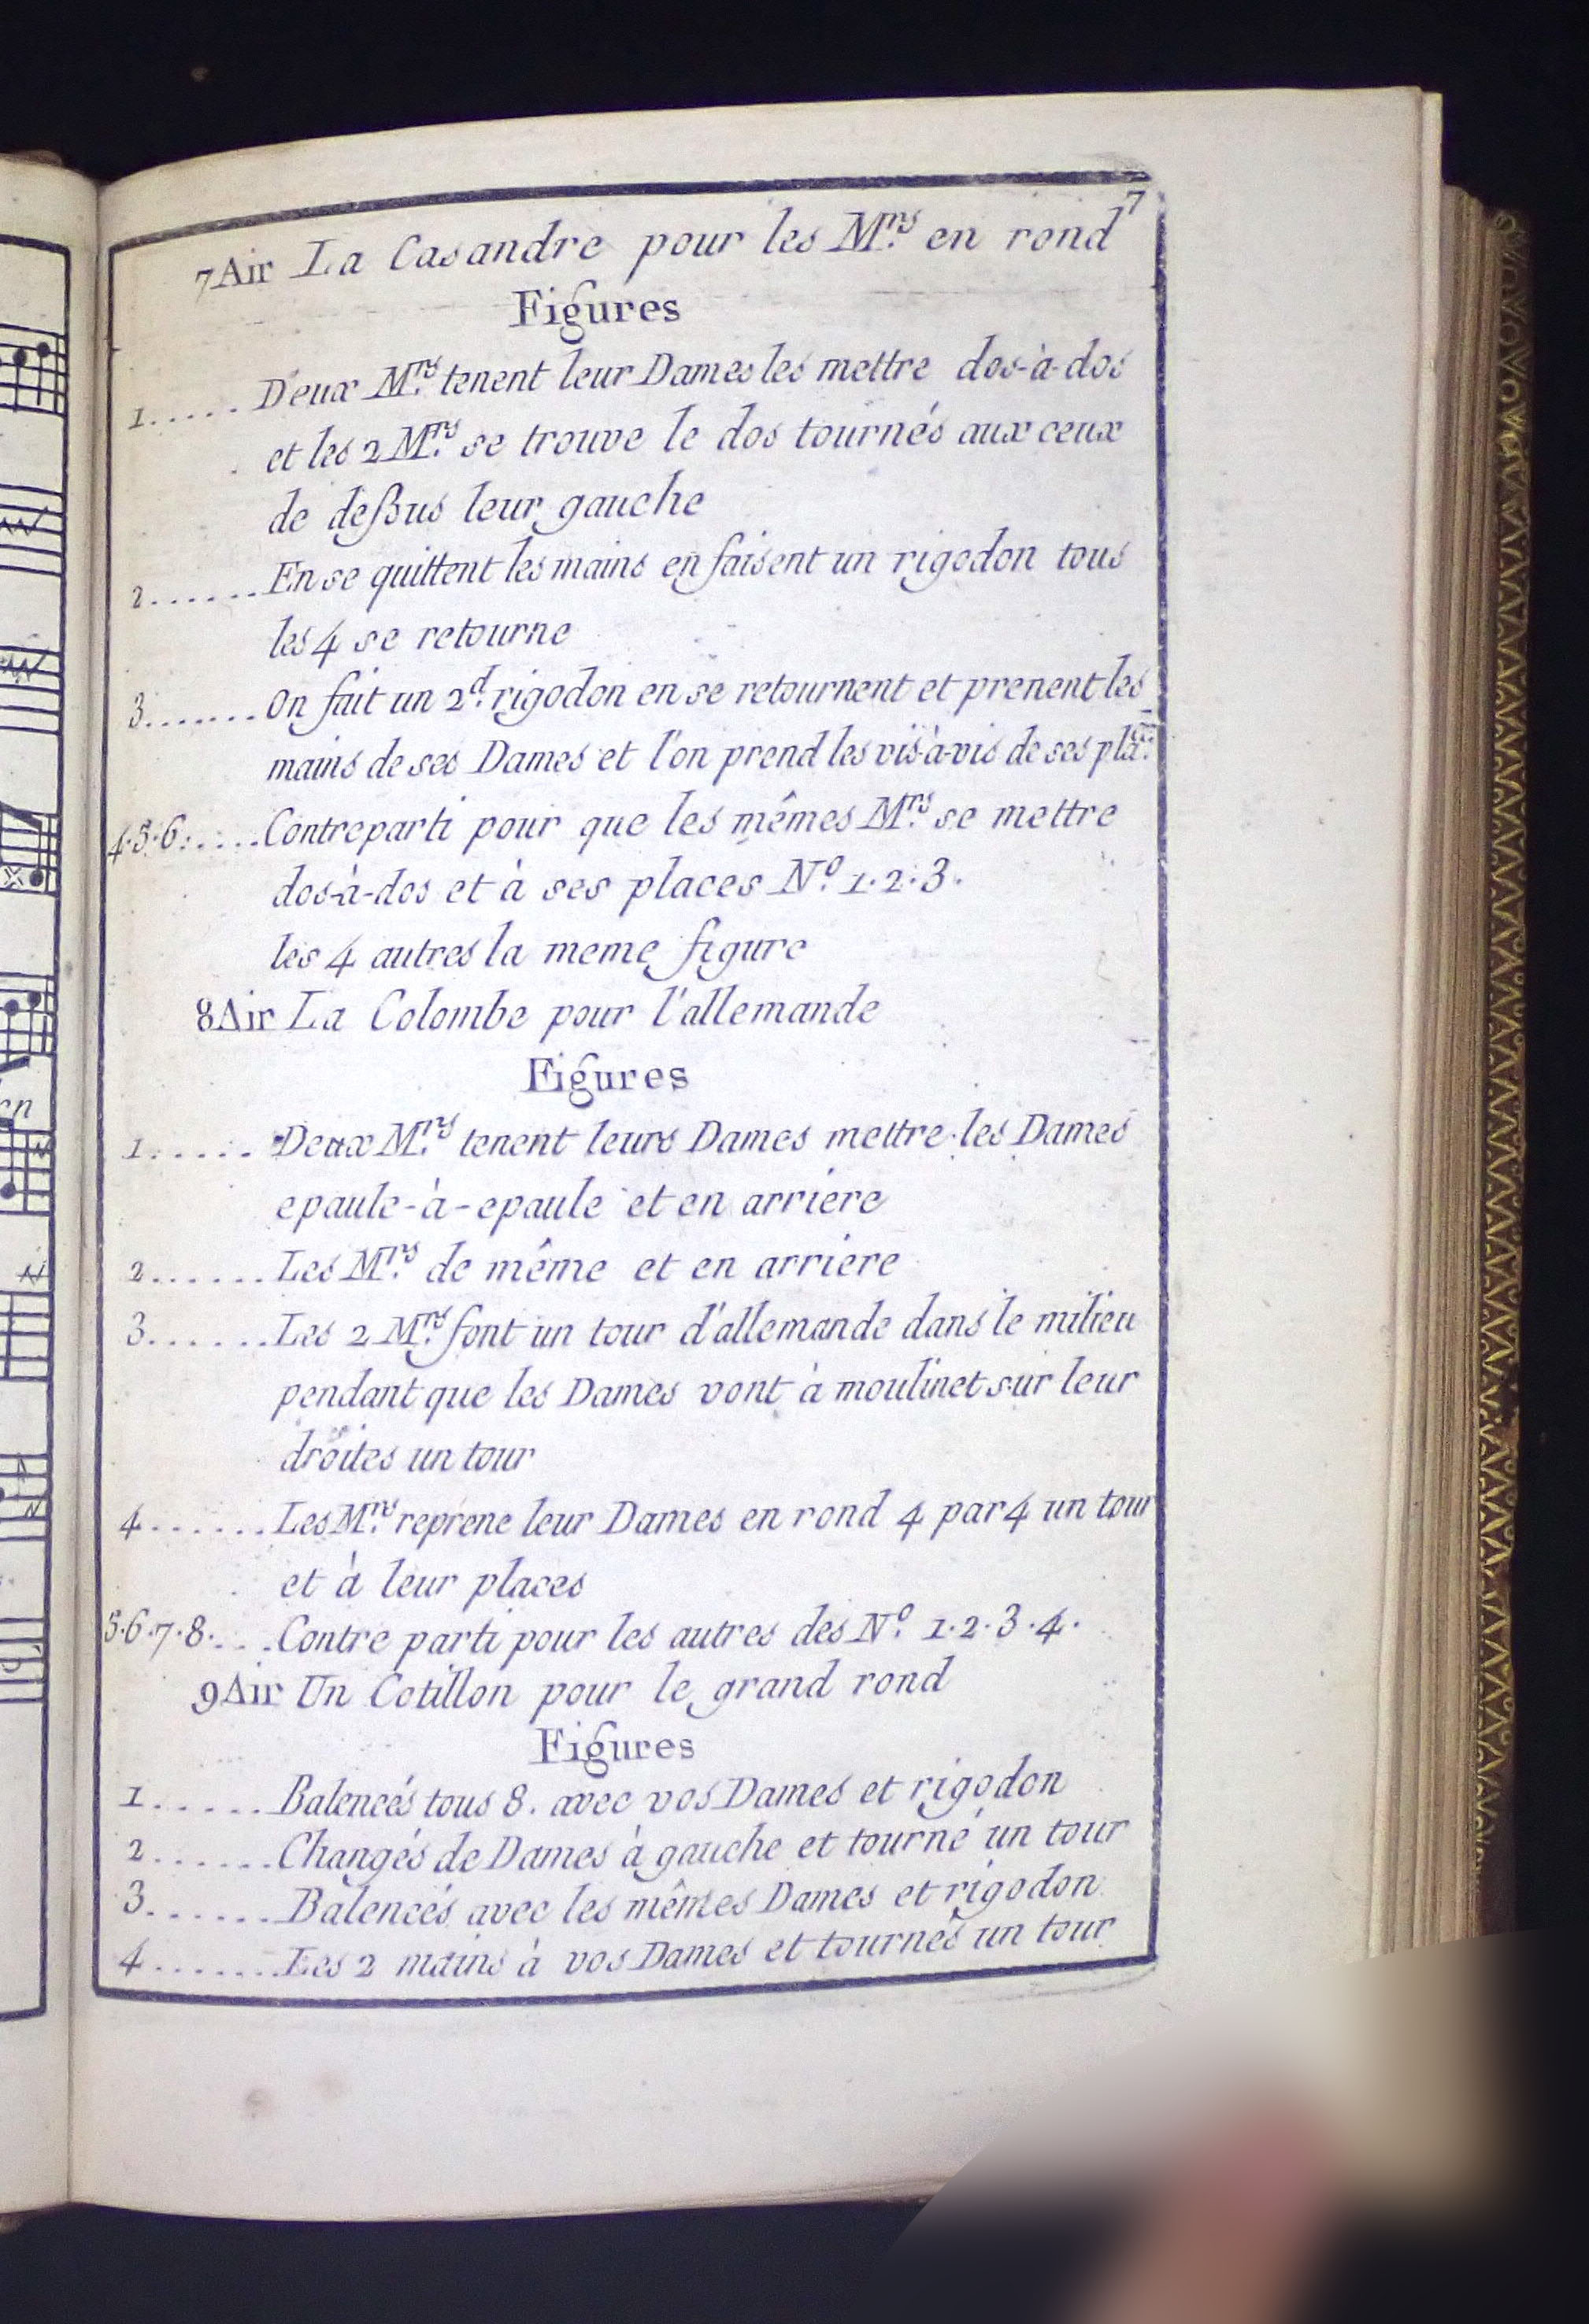 7
7 Air La Casandre pour les M.rs en rond
Figures
1..... Deux M.rs tenent leur Dames les mettre dos-à-dos
et les 2 M.rs se trouve le dos tournés aux ceux
de deßus leur gauche
2...... En se quittent les mains en faisent un rigodon tous
les 4 se retourne
3....... On fait un 2.d rigodon en se retournent et prenent les
mains de ses Dames et l'on prend les vis-à-vis de ses
4.5.6..... Contreparti pour que les mêmes M.rs se mettre
dos-à-dos et à ses places N.o 1.2.3.
les 4 autres la meme figure
8 Air La Colombe pour l'allemande
Figures
1...... Deux M.rs tenent leurs Dames mettre les Dames
epaule-à-epaule et en arriere
2...... Les M.rs de même et en arriere
3...... Les 2 M.rs font un tour d'allemande dans le milieu
pendant que les Dames vont à moulinet sur leur
droites un tour
4...... Les M.rs reprene leur Dames en rond 4 par 4 un tour
et à leur places
5.6.7.8.... Contre parti pour les autres des N.o 1.2.3.4.
9 Air Un Cotillon pour le grand rond
Figures
1...... Balencés tous 8. avec vos Dames et rigodon
2...... Changés de Dames à gauche et tourné un tour
3...... Balencés avec les mêmes Dames et rigodon
4....... Les 2 mains à vos Dames et tournés un tour